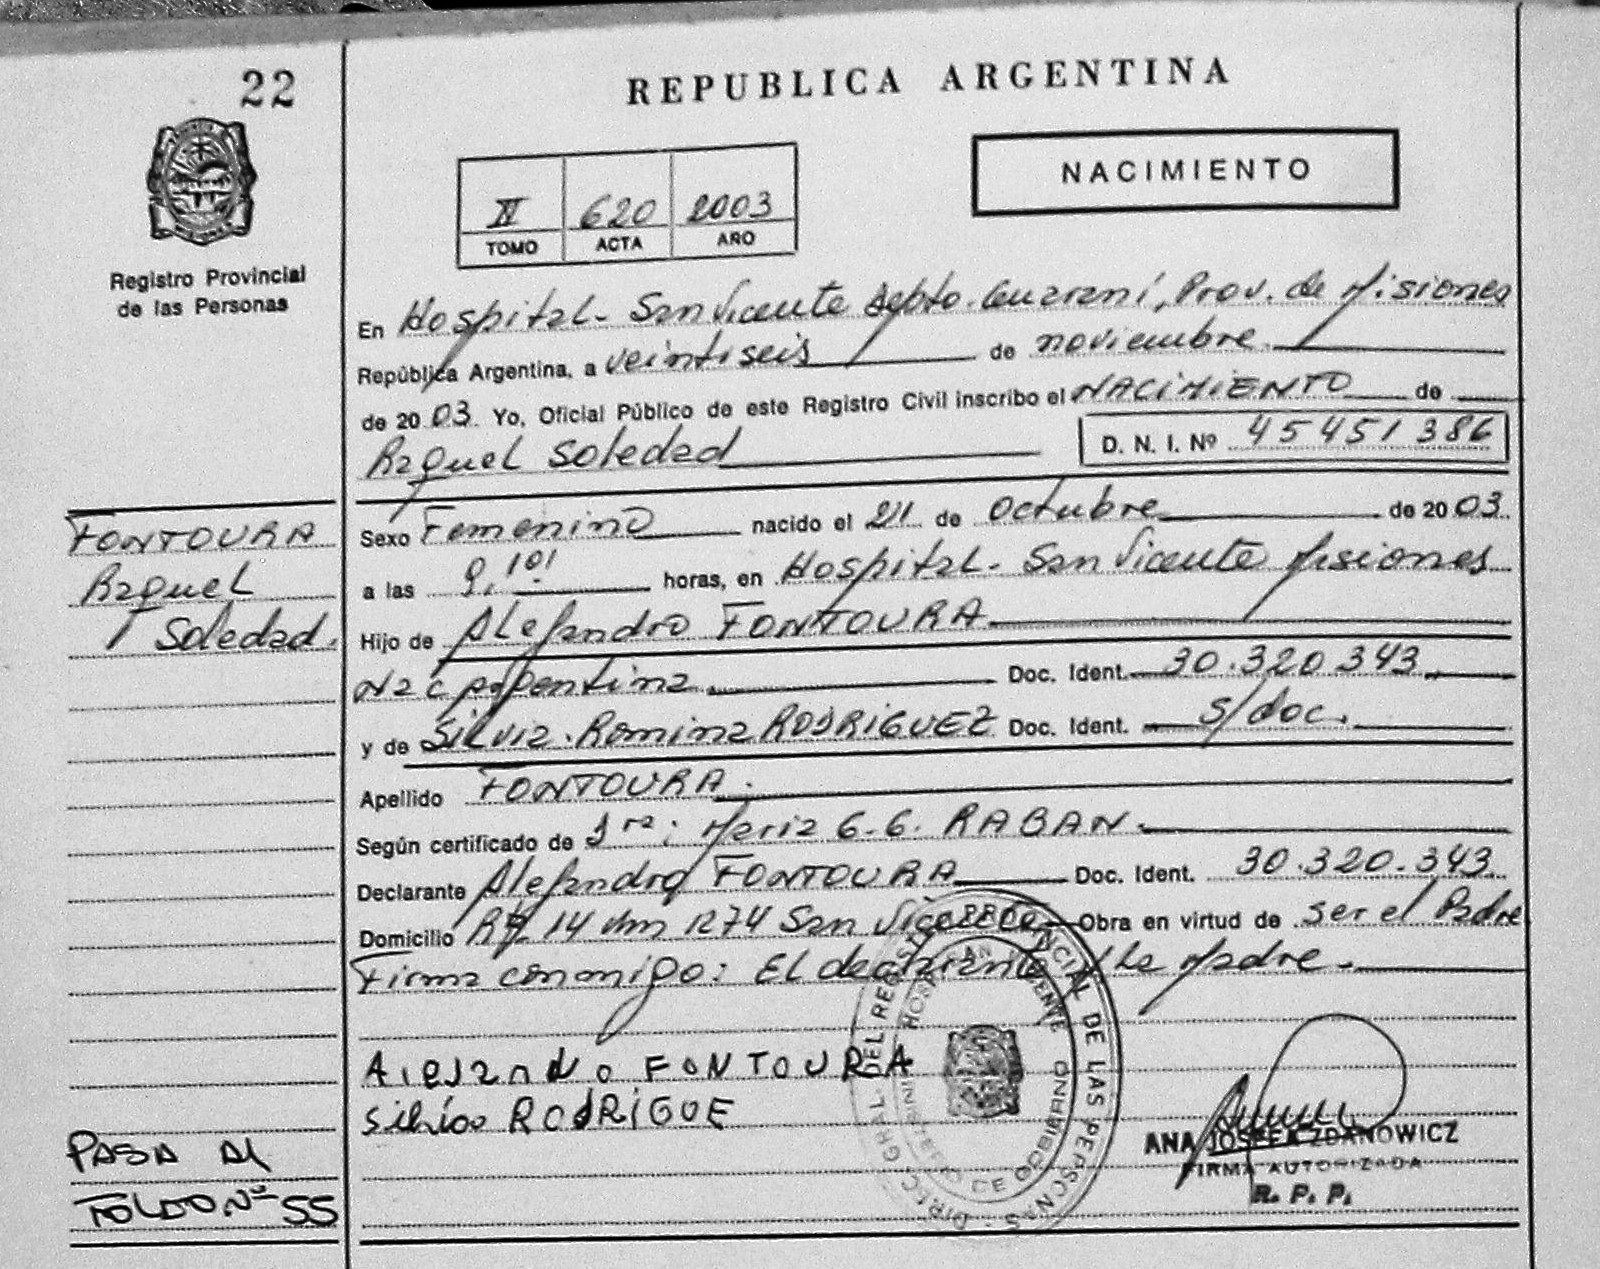 22
REPUBLICA ARGENTINA
NACIMIENTO
II 620 2003
TOMO ACTA AÑO
Registro Provincial
de las Personas
En Hospital - San Vicente Depto. Guaraní, Prov. de Misiones
República Argentina, a veintiseis de noviembre
de 2003. Yo, Oficial Público de este Registro Civil inscribo el NACIMIENTO de
Raquel Soledad D. N. I. Nº 45451386
FONTOURA
Raquel
Soledad.
Sexo Femenino nacido el 21 de Octubre de 2003.
a las 9,10' horas, en Hospital - San Vicente Misiones
Hijo de Alejandro FONTOURA
Nac Argentina Doc. Ident. 30.320.343
y de Silvia Romina RODRIGUEZ Doc. Ident. s/doc.
Apellido FONTOURA.
Según certificado de 1ra: Maria G. G. RABAN.
Declarante Alejandro FONTOURA Doc. Ident. 30.320.343.
Domicilio 14 km 1274 San Vicente Obra en virtud de ser el Padre
Firma conmigo: El declarante y la Madre.
Alejandro FONTOURA
RODRIGUE
PASA AL
FOLIO Nº 55
DIREC. GRAL. DEL REGISTRO PROVINCIAL DE LAS PERSONAS
HOSPITAL SAN VICENTE
MINISTERIO DE GOBIERNO
ANA JOSEFA ZDANOWICZ
FIRMA AUTORIZADA
R. P. P.